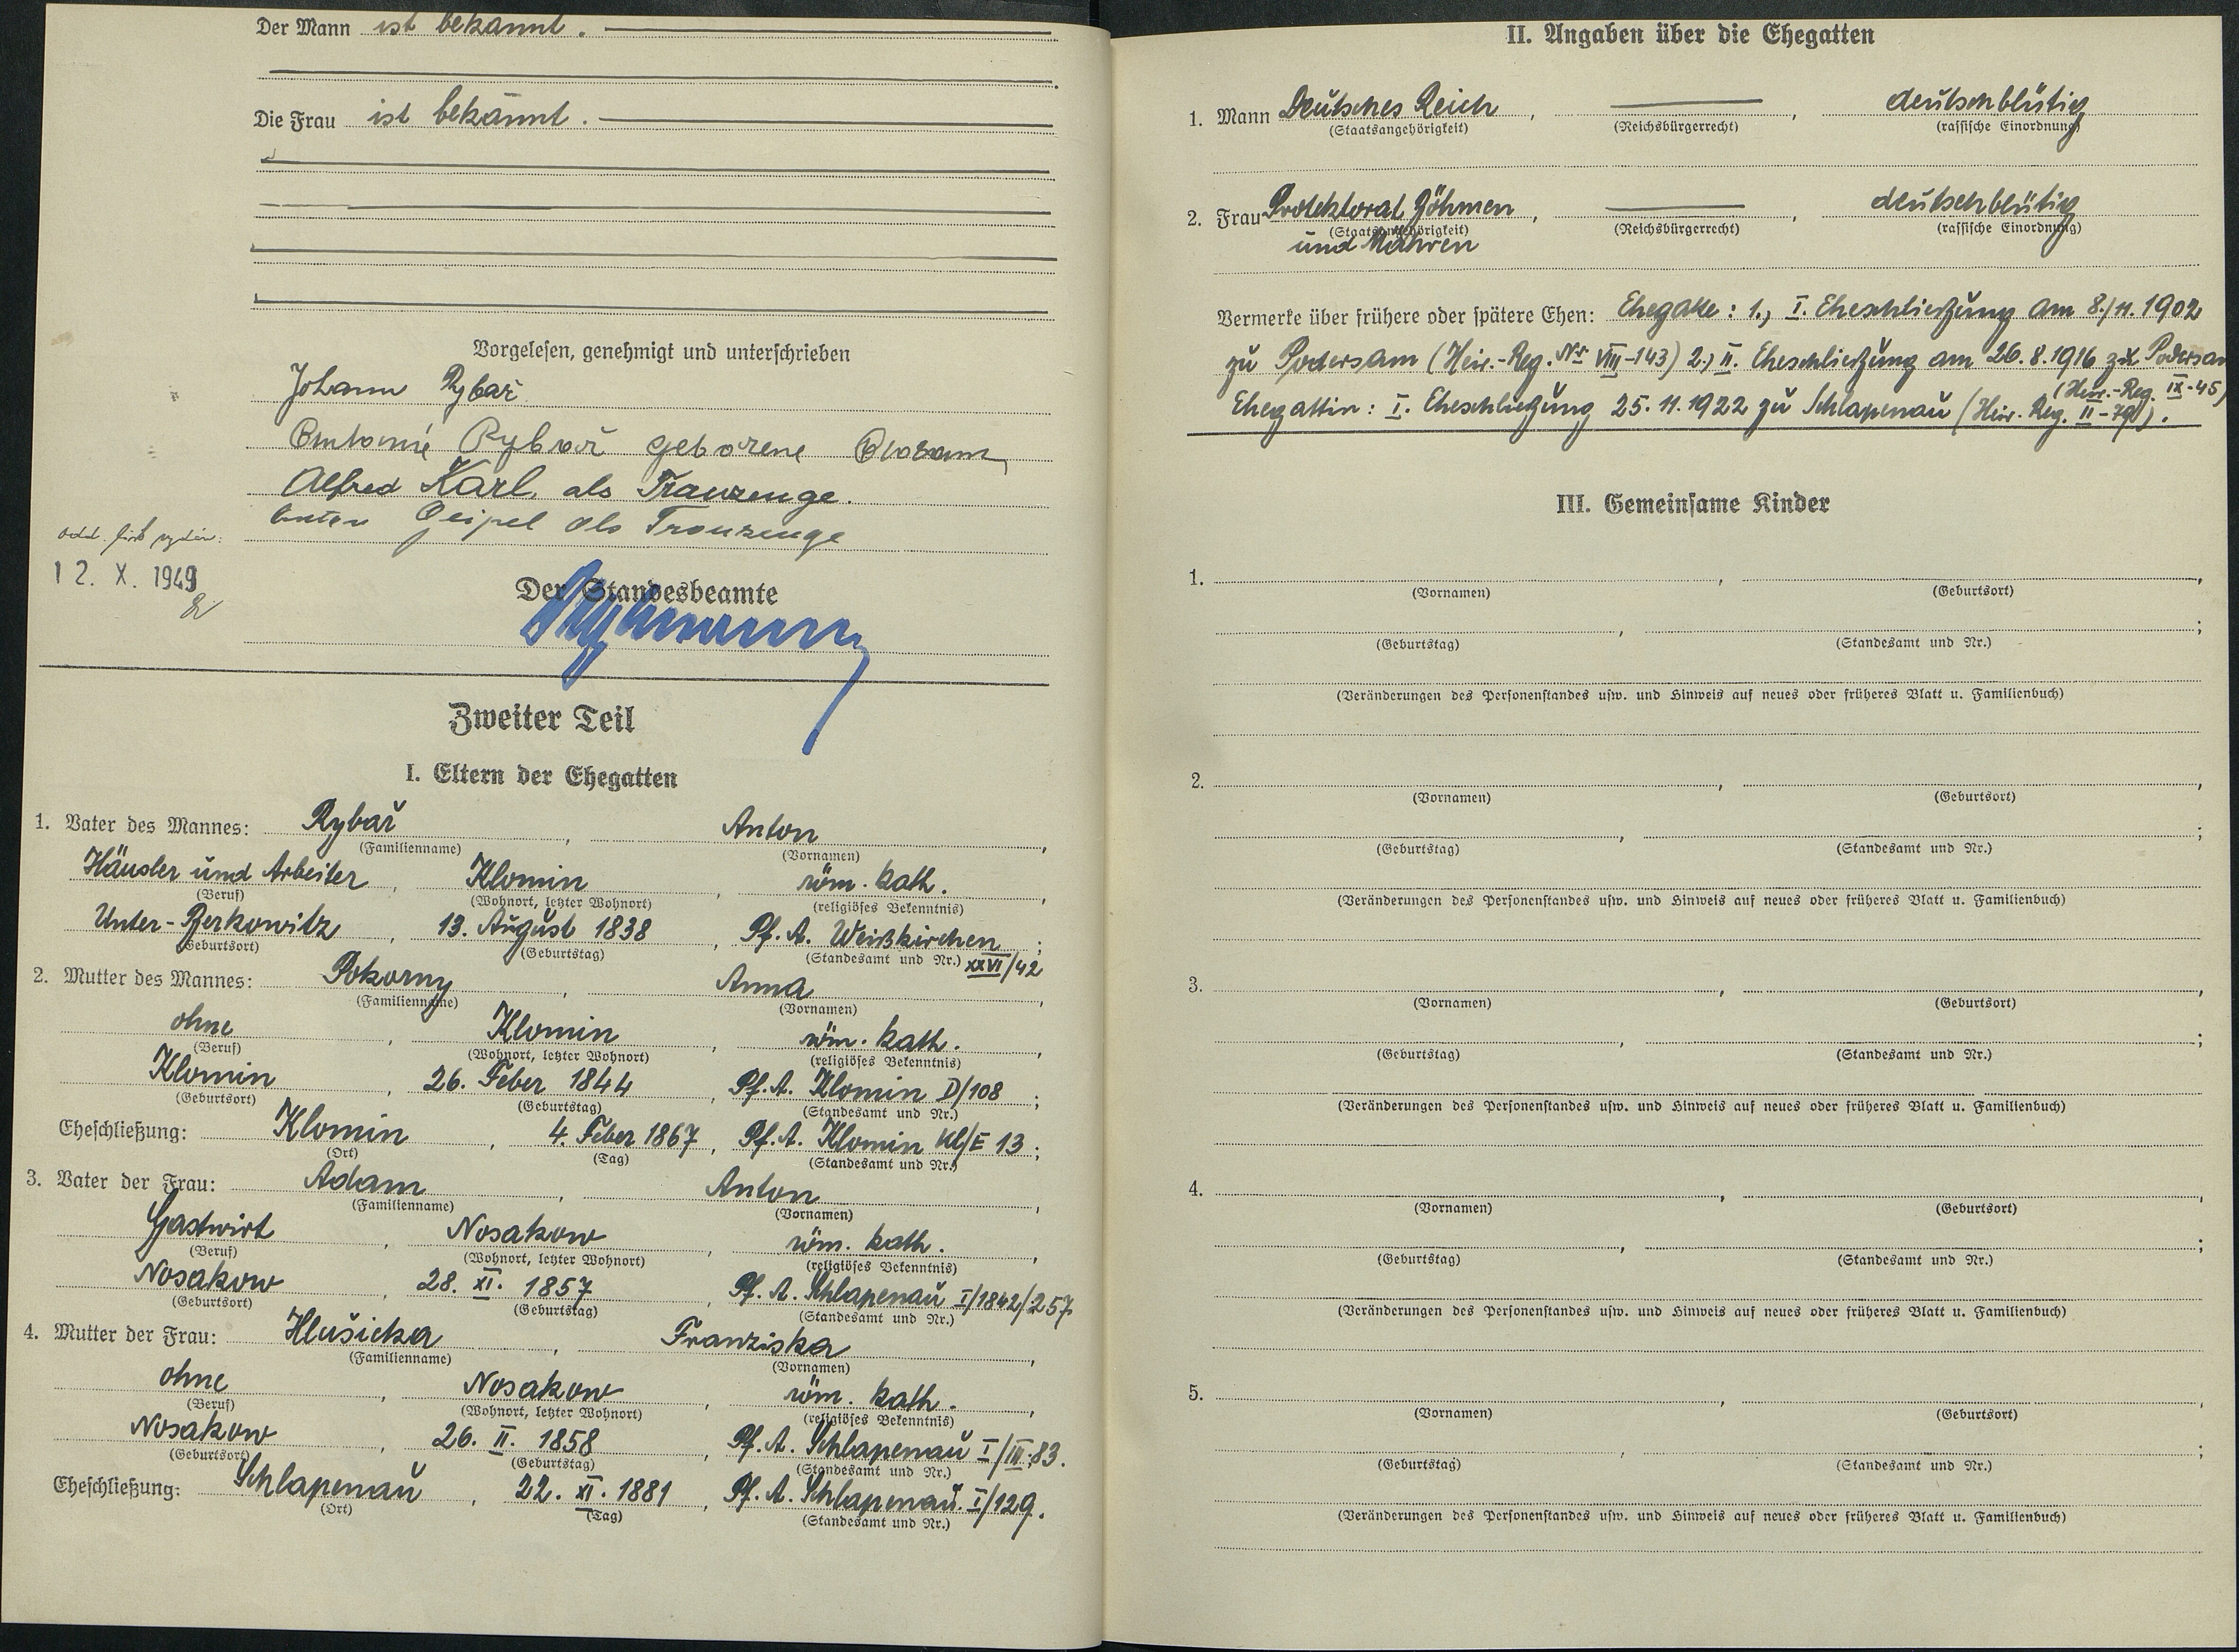 Der Mann ist bekannt.
Die Frau ist bekannt.
Vorgelesen, genehmigt und unterschrieben
Johann Rybař
Antonie Rybař geborene
Alfred Karl als Trauzeuge.
Geipel als Trauzeuge
12. X. 1949
Der Standesbeamte
Zweiter Teil
I. Eltern der Ehegatten
1. Vater des Mannes: Rybař, Anton,
(Familienname) (Vornamen)
Häusler und Arbeiter, Klomin, röm. kath.,
(Beruf) (Wohnort, letzter Wohnort) (religiöses Bekenntnis)
Unter-Berkowitz, 13. August 1838, Pf. A. Weißkirchen;
(Geburtsort) (Geburtstag) (Standesamt und Nr.) XXVI/42
2. Mutter des Mannes: Pokorny, Anna,
(Familienname) (Vornamen)
ohne, Klomin, röm. kath.,
(Beruf) (Wohnort, letzter Wohnort) (religiöses Bekenntnis)
Klomin, 26. Feber 1844, Pf. A. Klomin D/108;
(Geburtsort) (Geburtstag) (Standesamt und Nr.)
Eheschließung: Klomin, 4. Feber 1867, Pf. A. Klomin Kl/E 13;
(Ort) (Tag) (Standesamt und Nr.)
3. Vater der Frau: Adam, Anton,
(Familienname) (Vornamen)
Gastwirt, Nosakow, röm. kath.,
(Beruf) (Wohnort, letzter Wohnort) (religiöses Bekenntnis)
Nosakow, 28. XI. 1857, Pf. A. Schlapenau I/1842/257
(Geburtsort) (Geburtstag) (Standesamt und Nr.)
4. Mutter der Frau: Hlušička, Franziska,
(Familienname) (Vornamen)
ohne, Nosakow, röm. kath.,
(Beruf) (Wohnort, letzter Wohnort) (religiöses Bekenntnis)
Nosakow, 26. II. 1858, Pf. A. Schlapenau I/III.83.
(Geburtsort) (Geburtstag) (Standesamt und Nr.)
Eheschließung: Schlapenau, 22. XI. 1881, Pf. A. Schlapenau. I/129.
(Ort) (Tag) (Standesamt und Nr.)
II. Angaben über die Ehegatten
1. Mann Deutsches Reich, , deutschblütig
(Staatsangehörigkeit) (Reichsbürgerrecht) (rassische Einordnung)
2. Frau Protektorat Böhmen, , deutschblütig
(Staatsangehörigkeit) (Reichsbürgerrecht) (rassische Einordnung)
und Mähren
Vermerke über frühere oder spätere Ehen: Ehegatte: 1., I. Eheschließung am 8./11. 1902
zu Podersam (Heir.-Reg. Nr VIII-143) 2.) II. Eheschließung am 26.8.1916 zu Podersam
(Heir.-Reg. IX-45)
Ehegattin: I. Eheschließung 25.11.1922 zu Schlapenau (Heir. Reg. II-70).
III. Gemeinsame Kinder
1. , ,
(Vornamen) (Geburtsort)
, ;
(Geburtstag) (Standesamt und Nr.)
(Veränderungen des Personenstandes usw. und Hinweis auf neues oder früheres Blatt u. Familienbuch)
2. , ,
(Vornamen) (Geburtsort)
, ;
(Geburtstag) (Standesamt und Nr.)
(Veränderungen des Personenstandes usw. und Hinweis auf neues oder früheres Blatt u. Familienbuch)
3. , ,
(Vornamen) (Geburtsort)
, ;
(Geburtstag) (Standesamt und Nr.)
(Veränderungen des Personenstandes usw. und Hinweis auf neues oder früheres Blatt u. Familienbuch)
4. , ,
(Vornamen) (Geburtsort)
, ;
(Geburtstag) (Standesamt und Nr.)
(Veränderungen des Personenstandes usw. und Hinweis auf neues oder früheres Blatt u. Familienbuch)
5. , ,
(Vornamen) (Geburtsort)
, ;
(Geburtstag) (Standesamt und Nr.)
(Veränderungen des Personenstandes usw. und Hinweis auf neues oder früheres Blatt u. Familienbuch)